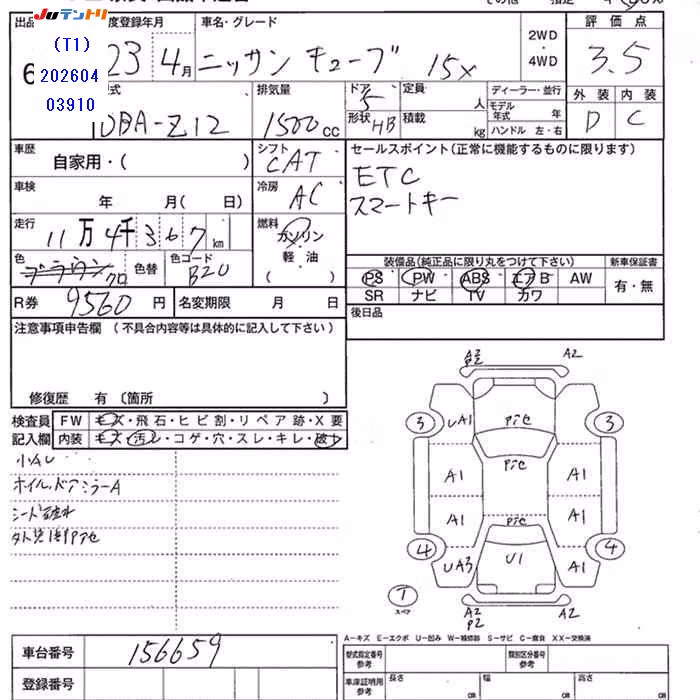 JUテントリ
出品
(T1)
202604
03910
6
度登録年月
23 4月
車名・グレード
ニッサン キューブ 15X
2WD
・
4WD
評価点
3.5
外装 内装
D C
式
DBA-Z12
排気量
1500cc
ドア
5
形状 HB
定員 人
積載 kg
ディーラー・並行
モデル年式 年
ハンドル 左・右
車歴
自家用・( )
シフト
CAT
車検
年 月( 日)
冷房
AC
走行
11万4千367km
燃料
ガソリン
軽油
( )
色
ブラウン クロ
色替
色コード
B20
R券 9560円
名変期限 月 日
セールスポイント(正常に機能するものに限ります)
ETC
スマートキー
装備品(純正品に限り丸をつけて下さい)
新車保証書
PS PW ABS エアB AW
SR ナビ TV カワ
有・無
後日品
注意事項申告欄 (不具合内容等は具体的に記入して下さい)
修復歴 有 〔箇所 〕
検査員
記入欄
FW キズ・飛石・ヒビ割・リペア跡・X要
内装 キズ・汚レ・コゲ・穴・スレ・キレ・破レ
小AU
ホイル.ドアミラーA
A2
P2
A2
3
UA1
Pﾃｾ
3
Pﾃｾ
A1
A1
Pﾃｾ
A1
A1
4
UA3
U1
A1
4
T
スペア
A2
P2
A2
A-キズ E-エクボ U-凹み W-補修跡 S-サビ C-腐食 XX-交換済
車台番号 156659
登録番号
型式指定番号
参考
類別区分番号
参考
車庫証明用
参考
長さ cm
幅 cm
高さ cm